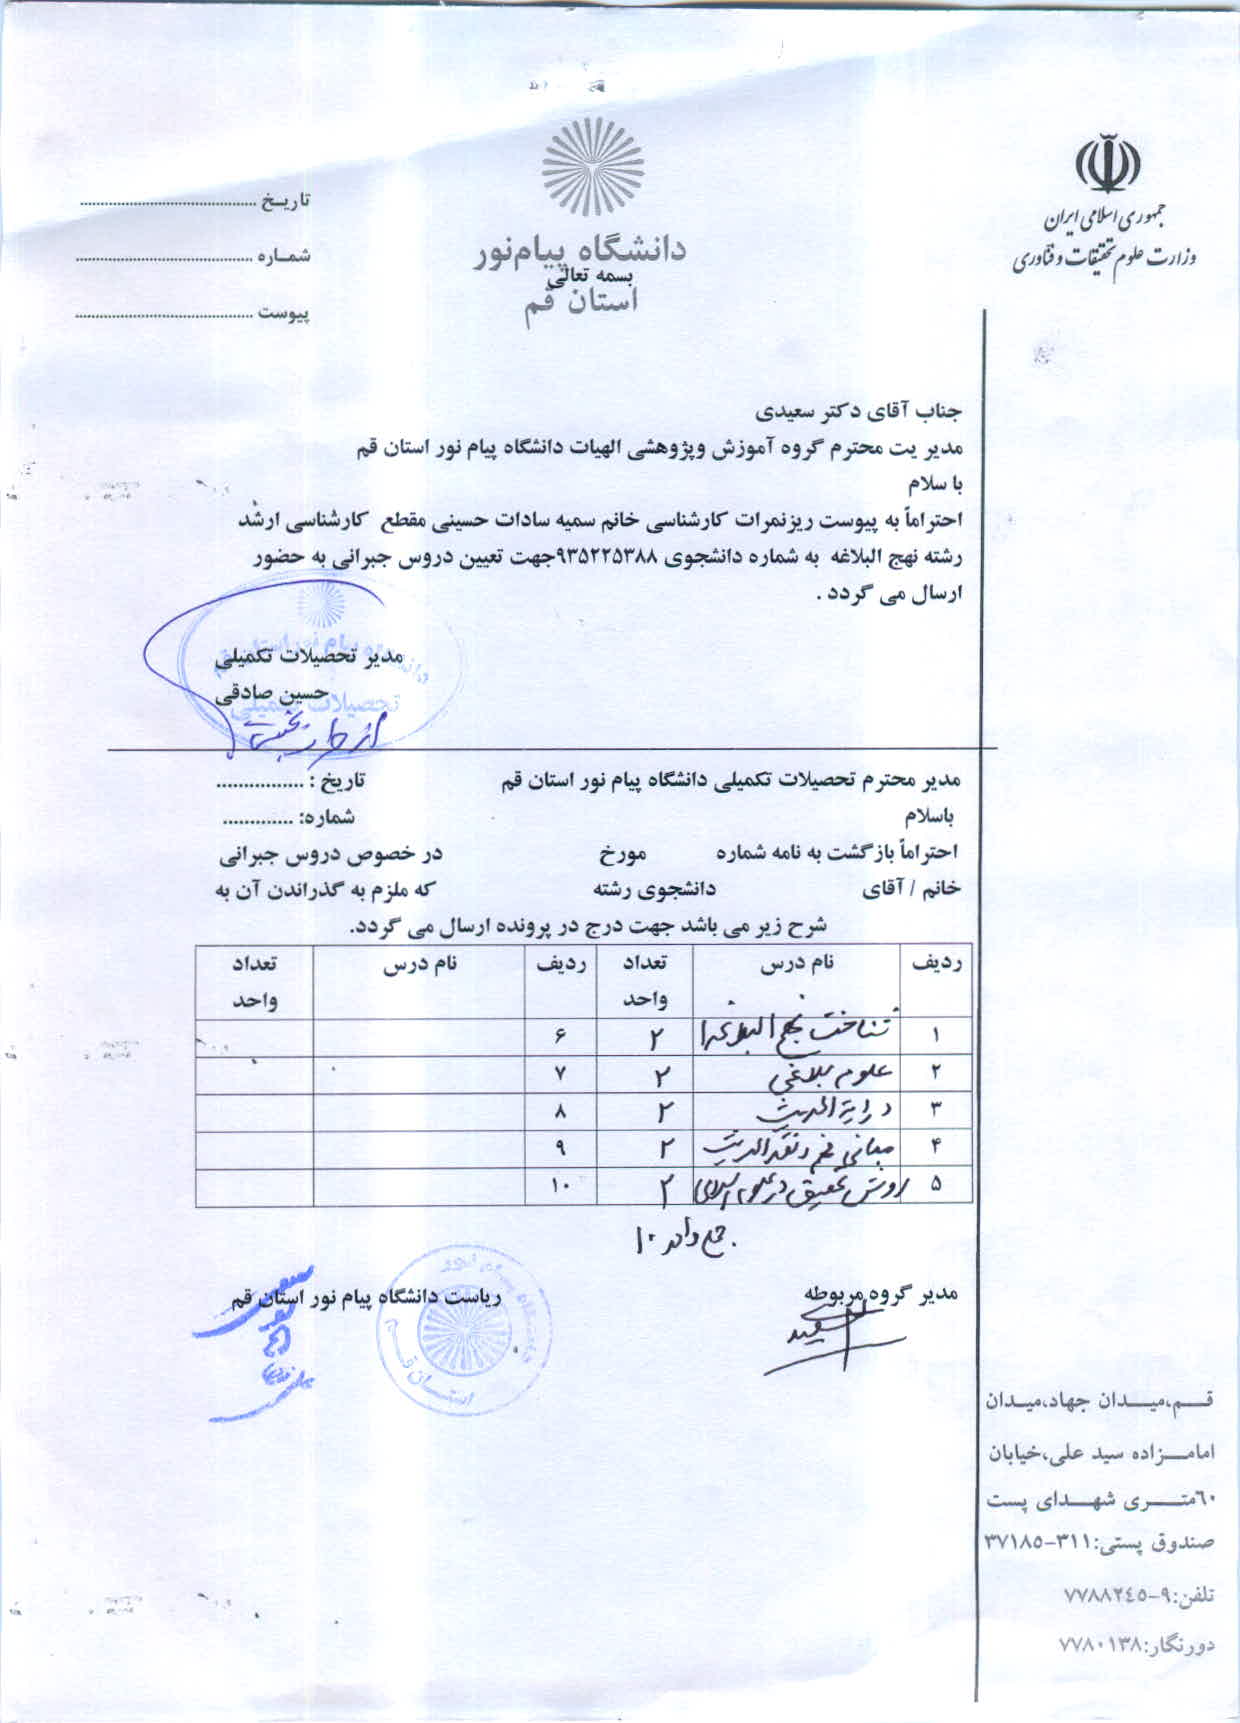 جمهوری اسلامی ایران
وزارت علوم تحقیقات و فناوری
دانشگاه پیام‌نور
بسمه تعالی
استان قم
تاریخ ........................................
شماره ........................................
پیوست ........................................
جناب آقای دکتر سعیدی
مدیر یت محترم گروه آموزش وپژوهشی الهیات دانشگاه پیام نور استان قم
با سلام
احتراماً به پیوست ریزنمرات کارشناسی خانم سمیه سادات حسینی مقطع کارشناسی ارشد
رشته نهج البلاغه به شماره دانشجوی ۹۳۵۲۲۵۳۸۸جهت تعیین دروس جبرانی به حضور
ارسال می گردد .
مدیر تحصیلات تکمیلی
حسین صادقی
دانشگاه پیام نور استان قم
تحصیلات تکمیلی
مدیر محترم تحصیلات تکمیلی دانشگاه پیام نور استان قم تاریخ : ................
باسلام شماره: .............
احتراماً بازگشت به نامه شماره مورخ در خصوص دروس جبرانی
خانم / آقای دانشجوی رشته که ملزم به گذراندن آن به
شرح زیر می باشد جهت درج در پرونده ارسال می گردد.
ردیف نام درس تعداد واحد ردیف نام درس تعداد واحد
۱ شناخت نهج البلاغه ۱ ۲ ۶
۲ علوم بلاغی ۲ ۷
۳ درایة الحدیث ۲ ۸
۴ مبانی فهم و نقد الحدیث ۲ ۹
۵ روش تحقیق در علوم اسلامی ۲ ۱۰
جمع واحد ۱۰
مدیر گروه مربوطه ریاست دانشگاه پیام نور استان قم
سعیدی
دانشگاه پیام نور
استان قم
قم،میدان جهاد،میدان
امامزاده سید علی،خیابان
٦٠متری شهدای پست
صندوق پستی:٣١١-٣٧١٨٥
تلفن:٩-٧٧٨٨٢٤٥
دورنگار:٧٧٨٠١٣٨